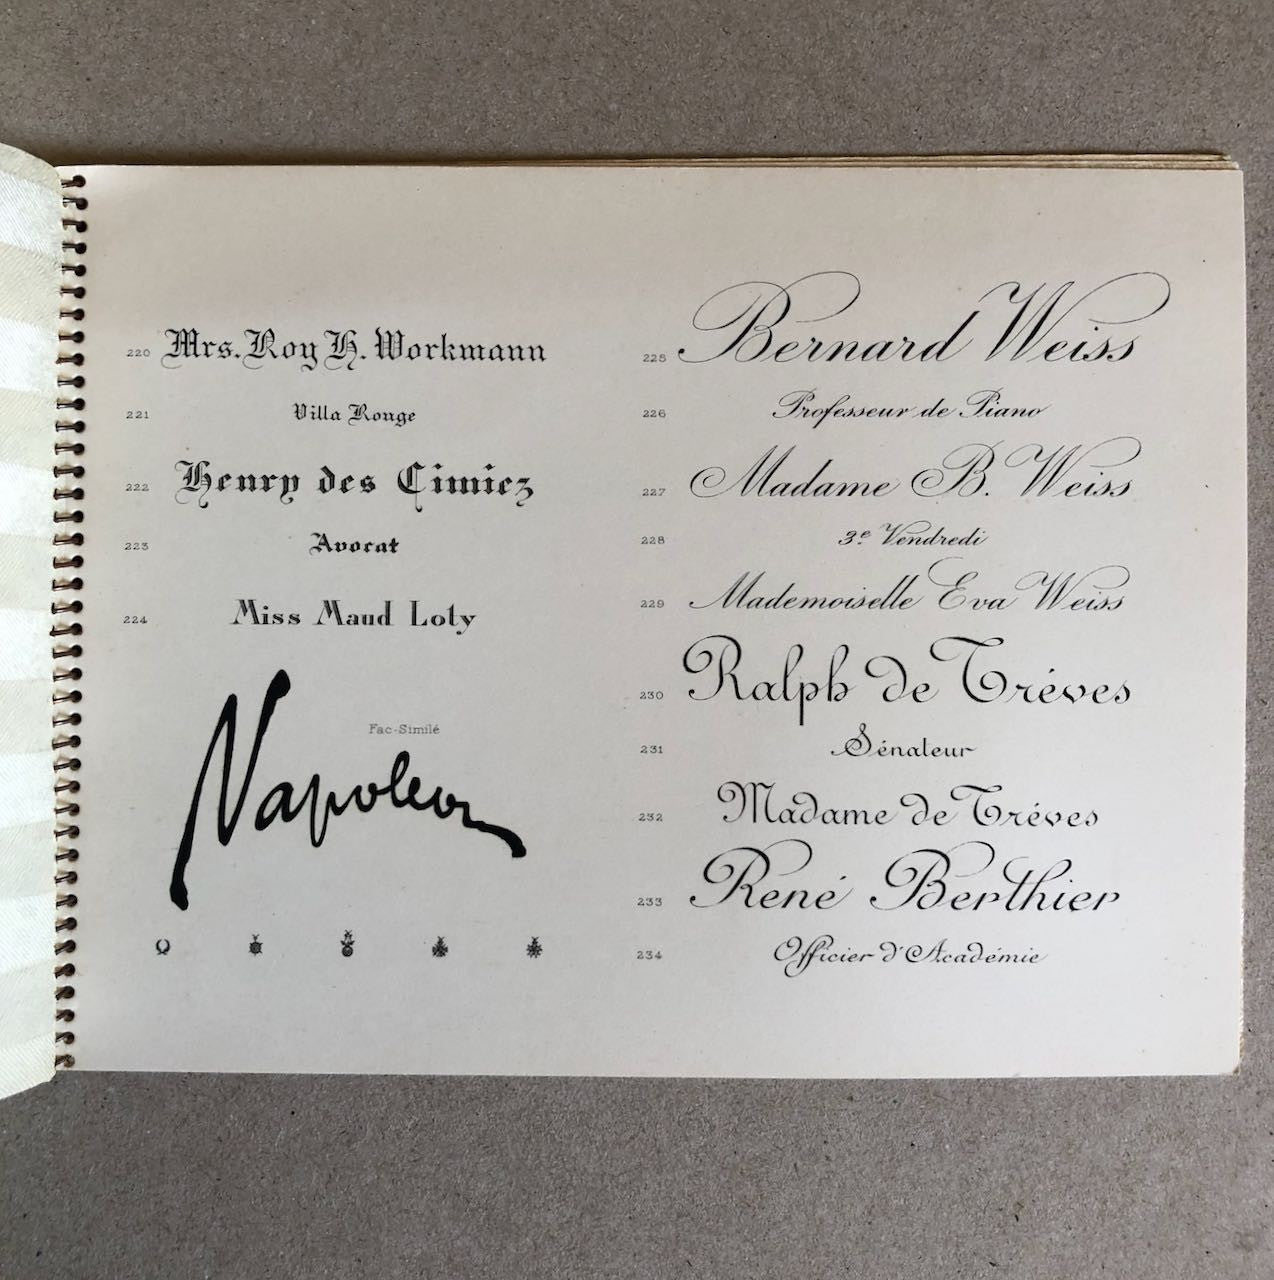 220 Mrs. Roy H. Workmann
221 Villa Rouge
222 Henry des Cimiez
223 Avocat
224 Miss Maud Loty
Fac-Similé
Napoleon
225 Bernard Weiss
226 Professeur de Piano
227 Madame B. Weiss
228 3e Vendredi
229 Mademoiselle Eva Weiss
230 Ralph de Tréves
231 Sénateur
232 Madame de Tréves
233 René Berthier
234 Officier d'Académie